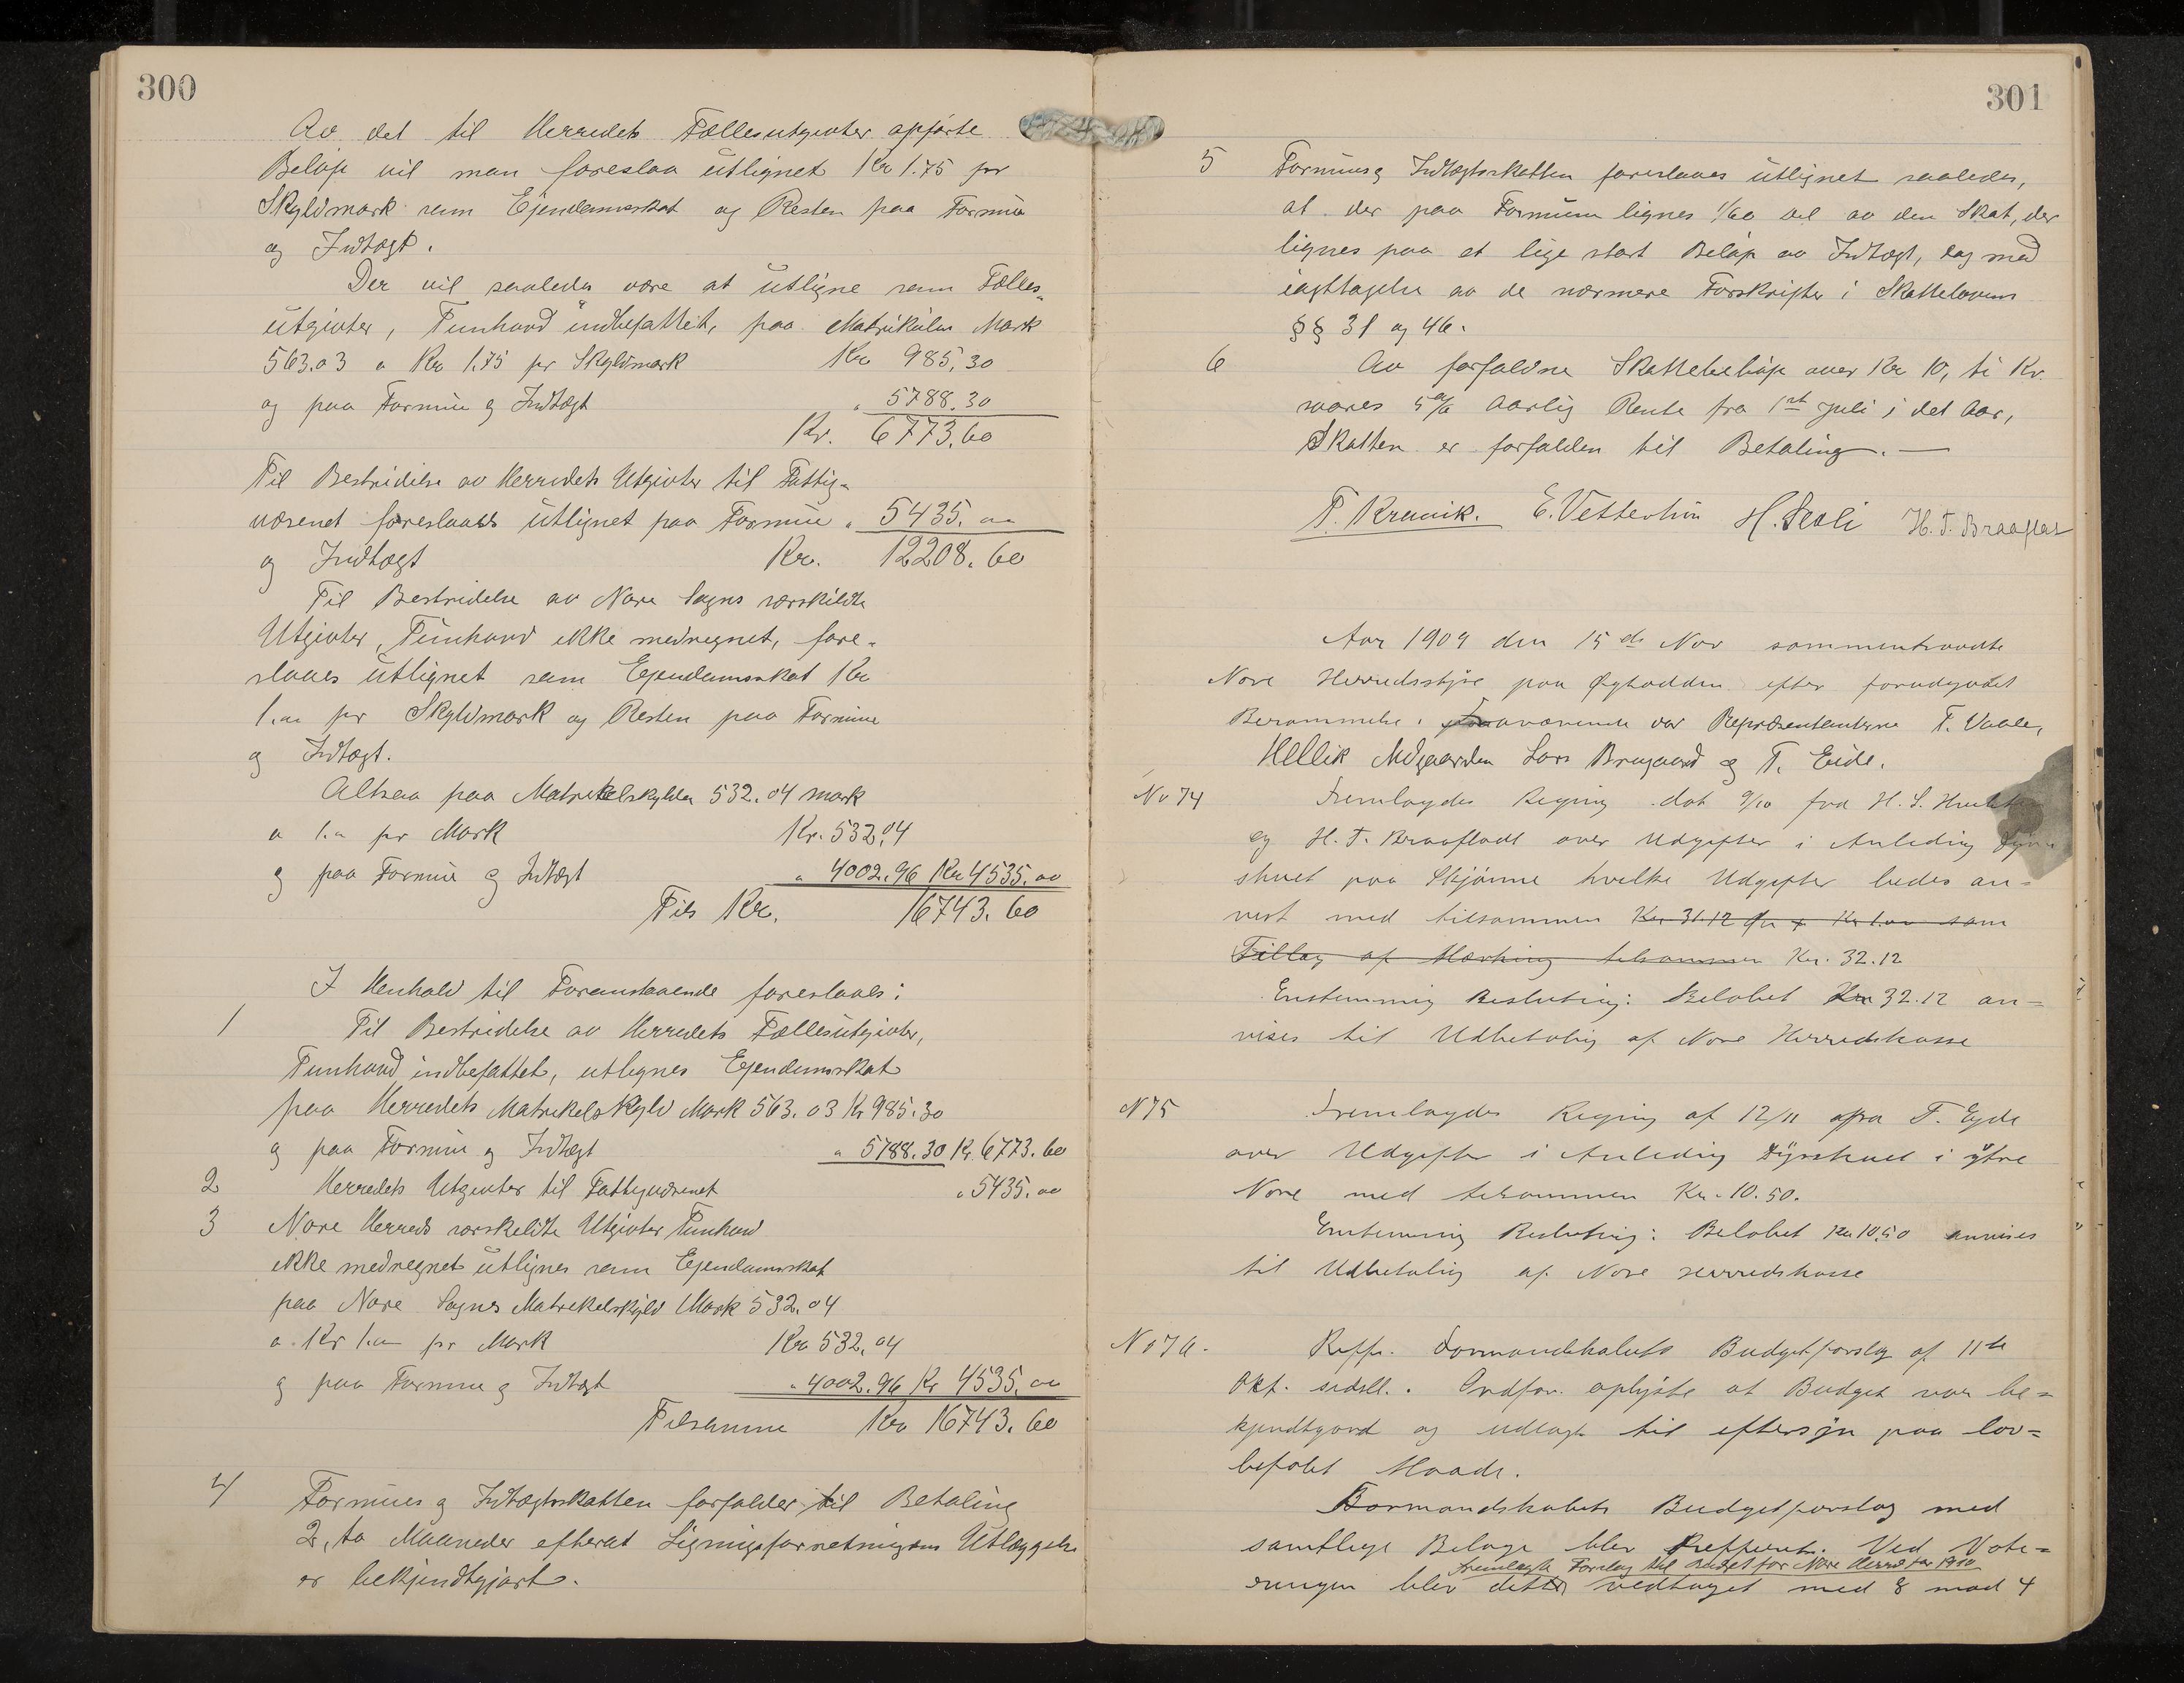 300
Av det til Herredets Fællesutgivter opførte
Beløp vil man foreslaa utlignet Kr 1.75 pr
Skyldmark som Ejendomsskat og Resten paa Formue
og Indtægt.
Der vil saaledes være at utligne som Fælles-
utgivter, Tunhovd indbefattet, paa Matrikulens Mark
563.03 a Kr 1.75 pr Skyldmark Kr 985,30
og paa Formue og Indtægt " 5788.30
Kr. 6773.60
Til Bestridelse av Herredets Utgivter til Fattig-
væsenet foreslaaes utlignet paa Formue " 5435.00
og Indtægt Kr. 12208.60
Til Bestridelse av Nore Sogns særskildte
Utgivter, Tunhovd ikke medregnet, fore-
slaaes utlignet som Ejendomsskat Kr
1.00 pr Skyldmark og Resten paa Formue
og Indtægt.
Altsaa paa Matrikelskylden 532.04 mark
a 1.00 pr Mark Kr. 532,04
og paa Formue og Indtægt " 4002.96 Kr 4535.00
Tils Kr. 16743.60
I Henhold til Foranstaaende foreslaaes:
1 Til Bestridelse av Herredets Fællesutgivter,
Tunhovd indbefattet, utlignes Ejendomsskat
paa Herredets Matrikelskyld Mark 563.03 Kr 985.30
og paa Formue og Indtægt " 5788.30 Kr. 6773.60
2 Herredets Utgivter til Fattigvæsenet " 5435.00
3 Nore Herreds særskildte Utgivter Tunhovd
ikke medregnet utlignes som Ejendomsskat
paa Nore Sogns Matrikelskyld Mark 532.04
a Kr 1.00 pr Mark Kr 532,04
og paa Formue og Indtægt " 4002.96 Kr 4535.00
Tilsamme Kr 16743.60
4 Formues og Indtægtsskatten forfalder til Betaling
2, to Maaneder efterat Ligningsforretningens Utlæggelse
er bekjendtgjort.
301
5 Formues og Indtægtsskatten foreslaaes utlignet saaledes,
at der paa Formuen lignes 1/60 del av den Skat, der
lignes paa et lige stort Beløp av Indtægt, dog med
iagttagelse av de nærmere Forskrifter i Skattelovens
§§ 31 og 46.
6 Av forfaldne Skattebeløp over Kr 10, ti Kr.
svares 5 % Aarlig Rente fra 1st Juli i det Aar,
Skatten er forfalden til Betaling. —
T. Kravik. E. Vetterhus H. Skoli H. T. Braaflat
Aar 1909 den 15de Nov sammentraadte
Nore Herredsstyre paa Øghodden efter forudgaaet
Berammelse. Fraværende var Repræsentanterne T. Vaale,
Hellik Midgaarden Lars Brugaard og T. Eide.
No 74 Fremlagdes Regning dat 9/10 fra H. S.
og H. T. Braafladt over Udgifter i Anledning Dyr
skuet paa Skjønne hvilke Udgifter bedes an=
vist med tilsammen Kr 31.12 Kr 1.00 som
Tillæg af Mærking tilsammen Kr. 32.12
Enstemmig Beslutning: Beløbet Kr 32.12 an=
vises til Udbetaling af Nore Herredskasse
N 75 Fremlagdes Regning af 12/11 fra T. Eyde
over Udgifter i Anledning Dyrskuet i ytre
Nore med tilsammen Kr. 10.50.
Enstemmig Beslutning: Beløbet Kr 10.50 anvises
til Udbetaling af Nore Herredskasse
No 76. Reff. Formandskabets Budgetforslag af 11te
Okt. sidstl. Ordfør. oplyste at Budget var be=
kjendtgjord og udlagt til eftersyn paa lov=
befalet Maade.
Formandskabets Budgetforslag med
samtlige Bilage blev Refferert. Ved Vote=
fremlagte Forslag til Budget for Nore Herred for 1910
ringen blev dette vedtaget med 8 mod 4